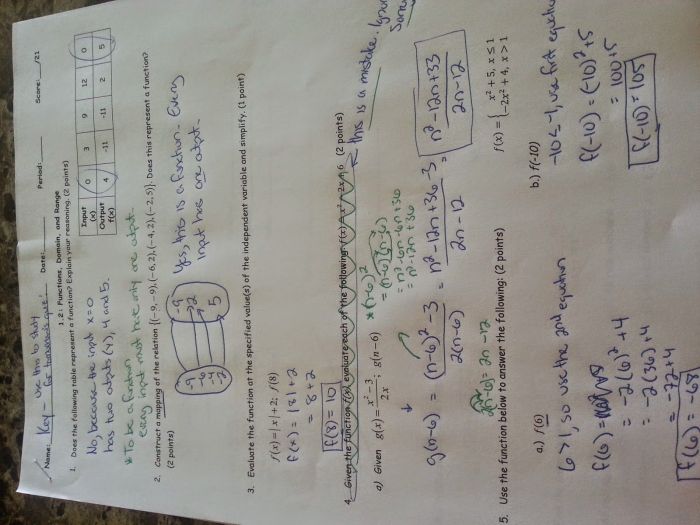 Name: Key Date: Period: Score: /21
use this to study
for tomorrow's quiz!
1.2: Functions, Domain, and Range
1. Does the following table represent a function? Explain your reasoning. (2 points)
Input (x) 0 3 9 12 0
Output f(x) 4 -11 -11 2 5
No, because the input x=0
has two outputs (y), 4 and 5.
*To be a function
every input must have only one output.
2. Construct a mapping of the relation {(-9, -9), (-6, 2), (-4, 2), (-2, 5)}. Does this represent a function?
(2 points)
-9 -6 -4 -2
-9 2 5
Yes, this is a function. Every
input has one output.
3. Evaluate the function at the specified value(s) of the independent variable and simplify. (1 point)
f(x) = |x| + 2; f(8)
= |8| + 2
= 8 + 2
f(8) = 10
4. Given the function f(x), evaluate each of the following: (2 points)
this is a mistake.
a) Given g(x) = x² - 3 / 2x ; g(n - 6)
*(n-6)²
= (n-6)(n-6)
= n² - 6n - 6n + 36
= n² - 12n + 36
g(n-6) = (n-6)² - 3 / 2(n-6) = n² - 12n + 36 - 3 / 2n - 12 = n² - 12n + 33 / 2n - 12
2(n-6) = 2n - 12
5. Use the function below to answer the following: (2 points)
f(x) = { x² + 5, x ≤ 1
-2x² + 4, x > 1
a.) f(6)
6 > 1, so use the 2nd equation
f(6) = -2(6)² + 4
= -2(36) + 4
= -72 + 4
f(6) = -68
b.) f(-10)
-10 ≤ 1, use first equation
f(-10) = (-10)² + 5
= 100 + 5
f(-10) = 105